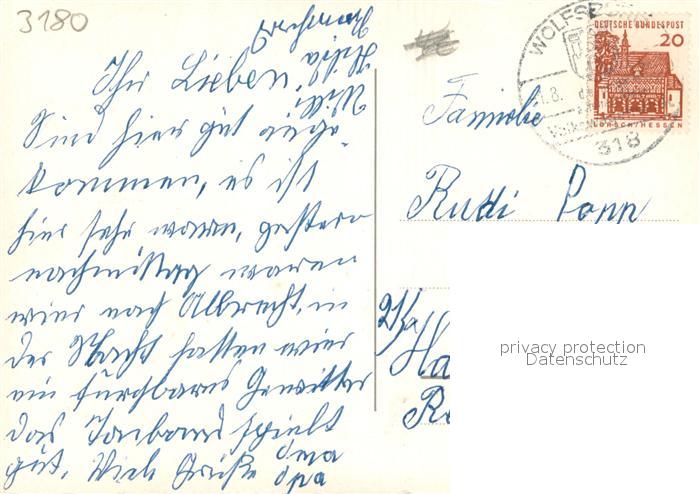 3180
Ihr Lieben,
Sind hier gut ange-
kommen, es ist
hier sehr warm, gestern
nachmittag waren
wier nach Albrecht, in
der Nacht hatten wier
ein furchbares Gewitter
das Tonband spielt
gut. Viele Grüße Oma
Opa
Willi
Familie
Rudi
Ha
DEUTSCHE BUNDESPOST
20
LORSCH/HESSEN
318
privacy protection
Datenschutz